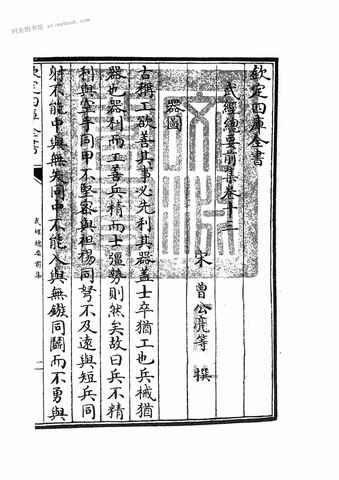 欽定四庫全書
武經總要前集卷十三
宋 曾公亮等 撰
器圖
古稱工欲善其事必先利其器蓋士卒猶工也兵械猶
器也器利而工善兵精而士彊勢則然矣故曰兵不精
利與空手同甲不堅密與袒裼同弩不及遠與短兵同
射不能中與無矢同中不能入與無鏃同鬭而不勇與
欽定四庫全書
武經總要前集